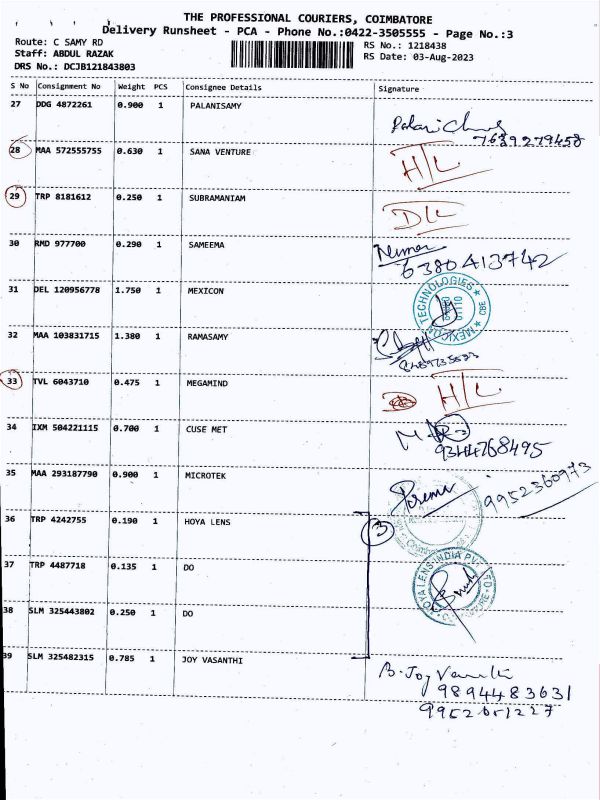 THE PROFESSIONAL COURIERS, COIMBATORE
Delivery Runsheet - PCA - Phone No.:0422-3505555 - Page No.:3
Route: C SAMY RD
RS No.: 1218438
Staff: ABDUL RAZAK
RS Date: 03-Aug-2023
DRS No.: DCJB121843803
S No Consignment No Weight PCS Consignee Details Signature
27 DDG 4872261 0.900 1 PALANISAMY
7639279458
28 MAA 572555755 0.630 1 SANA VENTURE H/L
29 TRP 8181612 0.250 1 SUBRAMANIAM D/L
30 RMD 977700 0.290 1 SAMEEMA
6380413742
31 DEL 120956778 1.750 1 MEXICON
TECHNOLOGIES
CBE
32 MAA 103831715 1.380 1 RAMASAMY
33 TVL 6043710 0.475 1 MEGAMIND H/L
34 IXM 504221115 0.700 1 CUSE MET
9344768495
35 MAA 293187790 0.900 1 MICROTEK
9952360973
36 TRP 4242755 0.190 1 HOYA LENS
3
37 TRP 4487718 0.135 1 DO
HOYA LENS INDIA PVT LTD
38 SLM 325443802 0.250 1 DO
39 SLM 325482315 0.785 1 JOY VASANTHI
B. Joy Vasanthi
9894483631
9952651227